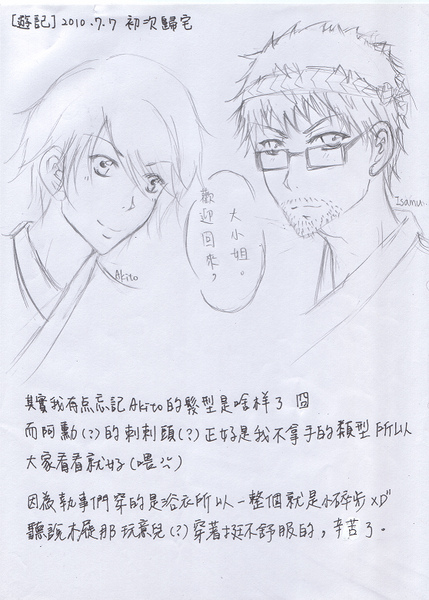 [遊記] 2010.7.7 初次歸宅
Isamu
大小姐。
歡迎回來,
Akito
其實我有点忘記Akito的髮型是啥样了 囧
而阿勳(?)的刺刺頭(?)正好是我不拿手的類型所以
大家看看就好(喂
因為執事們穿的是浴衣所以一整個就是小碎步XD"
聽說木屐那玩意兒(?)穿著挺不舒服的,辛苦了.